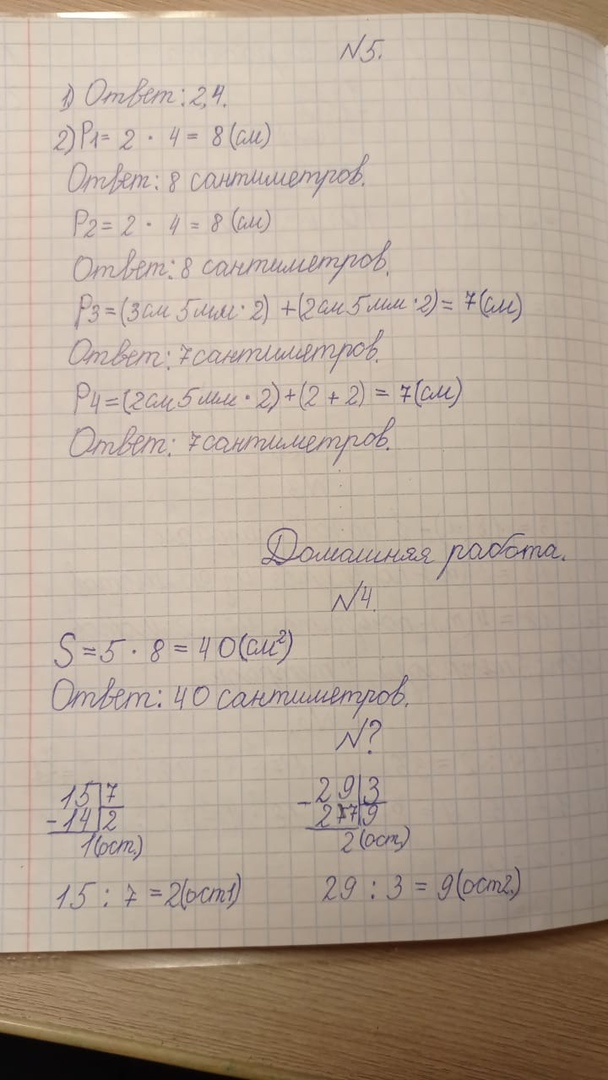 №5.
1) Ответ: 2,4.
2) P1 = 2 · 4 = 8 (см)
Ответ: 8 сантиметров.
P2 = 2 · 4 = 8 (см)
Ответ: 8 сантиметров.
P3 = (3см 5мм · 2) + (2см 5мм · 2) = 7 (см)
Ответ: 7 сантиметров.
P4 = (2см 5мм · 2) + (2 + 2) = 7 (см)
Ответ: 7 сантиметров.
Домашняя работа.
№4.
S = 5 · 8 = 40 (см²)
Ответ: 40 сантиметров.
№?
15 7 29 3
-14 2 -27 9
1(ост.) 2(ост.)
15 : 7 = 2(ост1) 29 : 3 = 9(ост2.)